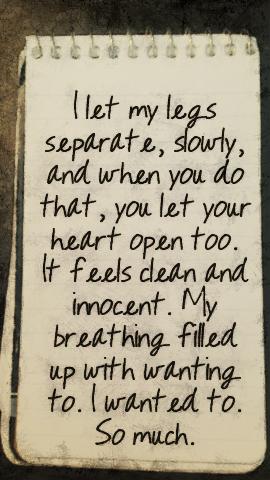 I let my legs
separate, slowly,
and when you do
that, you let your
heart open too.
It feels clean and
innocent. My
breathing filled
up with wanting
to. I wanted to.
So much.